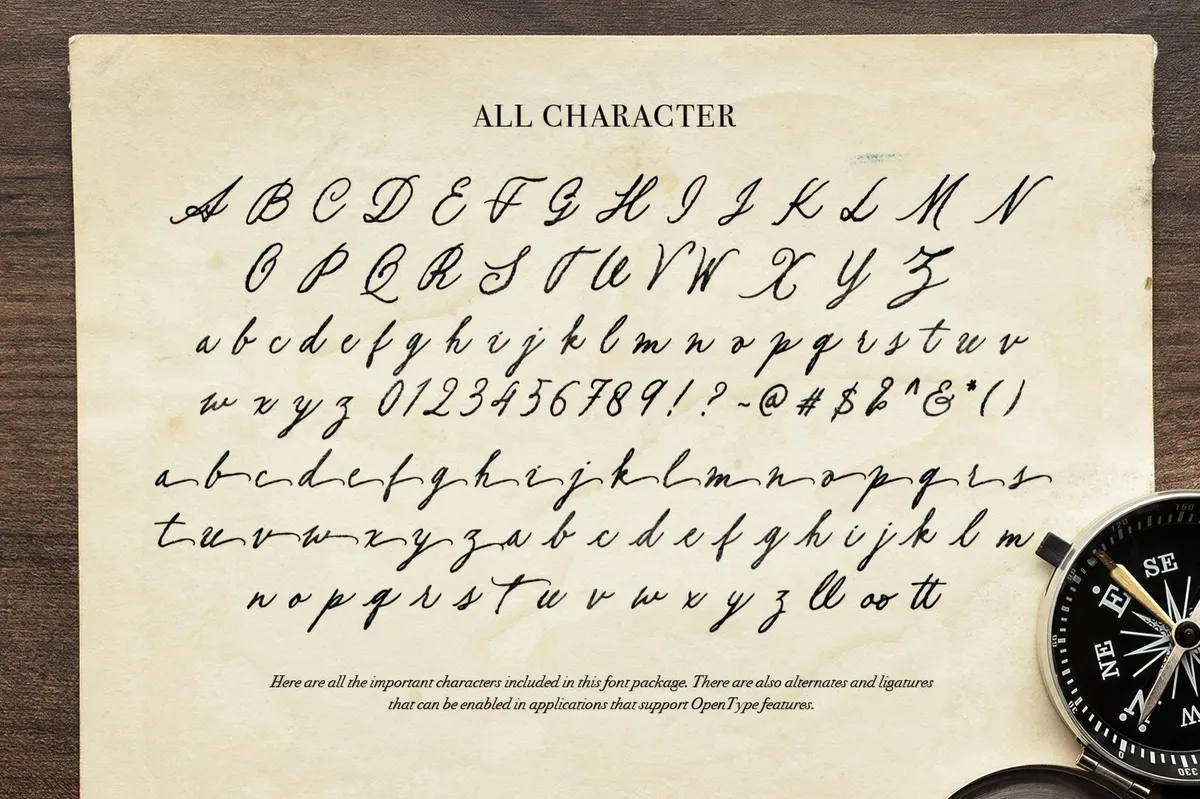 ALL CHARACTER
A B C D E F G H I J K L M N
O P Q R S T U V W X Y Z
a b c d e f g h i j k l m n o p q r s t u v
w x y z 0 1 2 3 4 5 6 7 8 9 ! ? ~ @ # $ % ^ & * ( )
a b c d e f g h i j k l m n o p q r s
t u v w x y z a b c d e f g h i j k l m
n o p q r s t u v w x y z ll oo tt
Here are all the important characters included in this font package. There are also alternates and ligatures
that can be enabled in applications that support OpenType features.
SE
E
NE
N
W
330
0
150
120